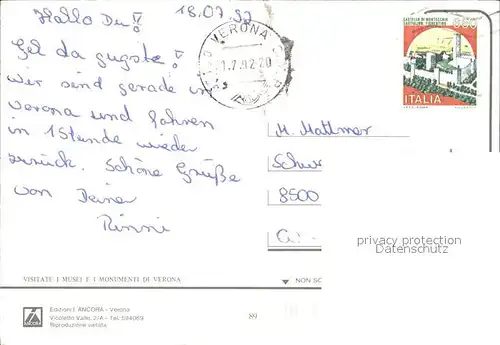 Hallo Du!!
18.07.92
Gel da gugste!!
wir sind gerade in
Verona und fahren
in 1 Stunde wieder
zurück. Schöne Grüße
von Deine
Rinni
VERONA
1.7.92-20
CASTELLO DI MONTECCHIO
CASTIGLION FIORENTINO
650
ITALIA
H. Mattmer
8500
privacy protection
Datenschutz
VISITATE I MUSEI E I MONUMENTI DI VERONA
NON SC
ANCORA
Edizioni L'ANCORA - Verona
Vicoletto Valle, 2/A - Tel. 594069
Riproduzione vietata
89